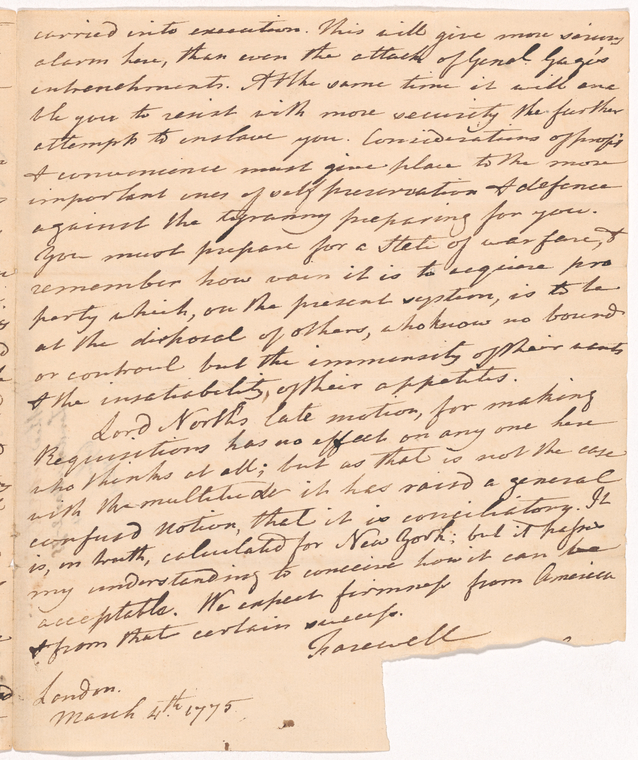 carried into execution. This will give more serious
alarm here, than even the attack of Genl. Gage's
entrenchments. At the same time it will ena
ble you to resist with more security the further
attempts to enslave you. Considerations of profit
& convenience must give place to the more
important ones of self preservation & defence
against the tyranny preparing for you.
You must prepare for a State of warfare, &
remember how vain it is to acquire pro
perty which, on the present system, is to be
at the disposal of others, who know no bound
or controul but the immensity of their wants
& the insatiability, of their appetites.
Lord North's late motion, for making
Requisitions has no effect on any one here
who thinks at all; but as that is not the case
with the multitude it has raised a general
confused notion, that it is conciliatory. It
is, in truth, calculated for New York; but it passes
my understanding to conceive how it can be
acceptable. We expect firmness from America
& from that certain success.
Farewell
London.
March 4th. 1775